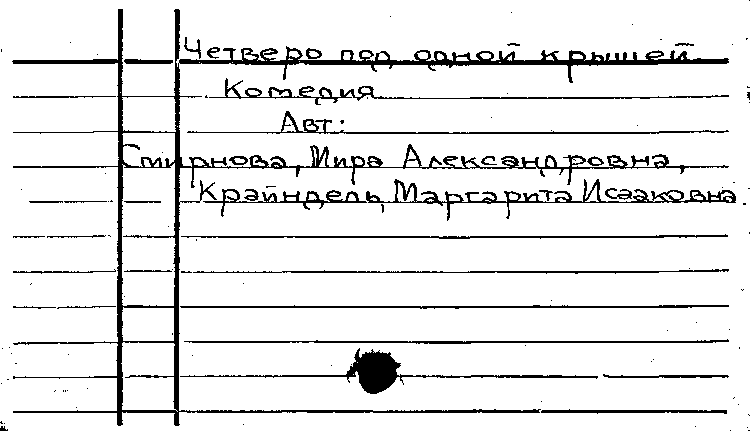 Четверо под одной крышей
Комедия
Авт:
Смирнова, Мира Александровна,
Крайндель, Маргарита Исааковна.